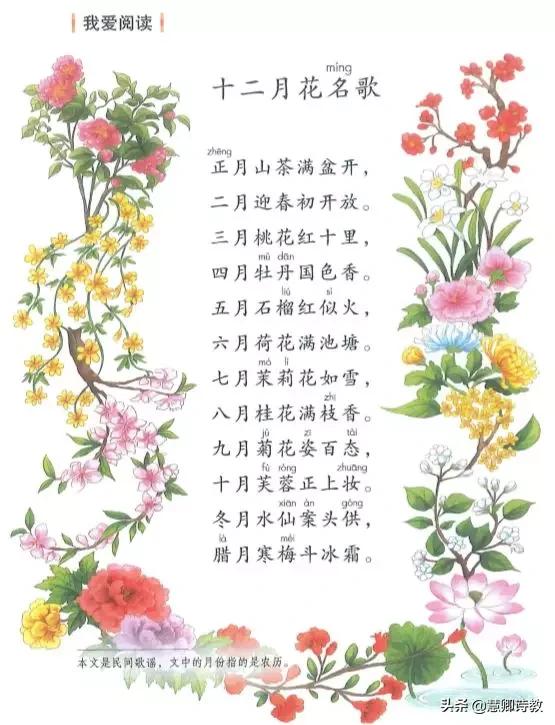 我爱阅读
míng
十二月花名歌
zhēng
正月山茶满盆开，
二月迎春初开放。
三月桃花红十里，
mǔ dān
四月牡丹国色香。
liú sì
五月石榴红似火，
六月荷花满池塘。
mò lì
七月茉莉花如雪，
zhī
八月桂花满枝香。
jú zī tài
九月菊花姿百态，
fú róng zhuāng
十月芙蓉正上妆。
xiān àn gòng
冬月水仙案头供，
là méi
腊月寒梅斗冰霜。
本文是民间歌谣，文中的月份指的是农历。
头条 @慧卿诗教